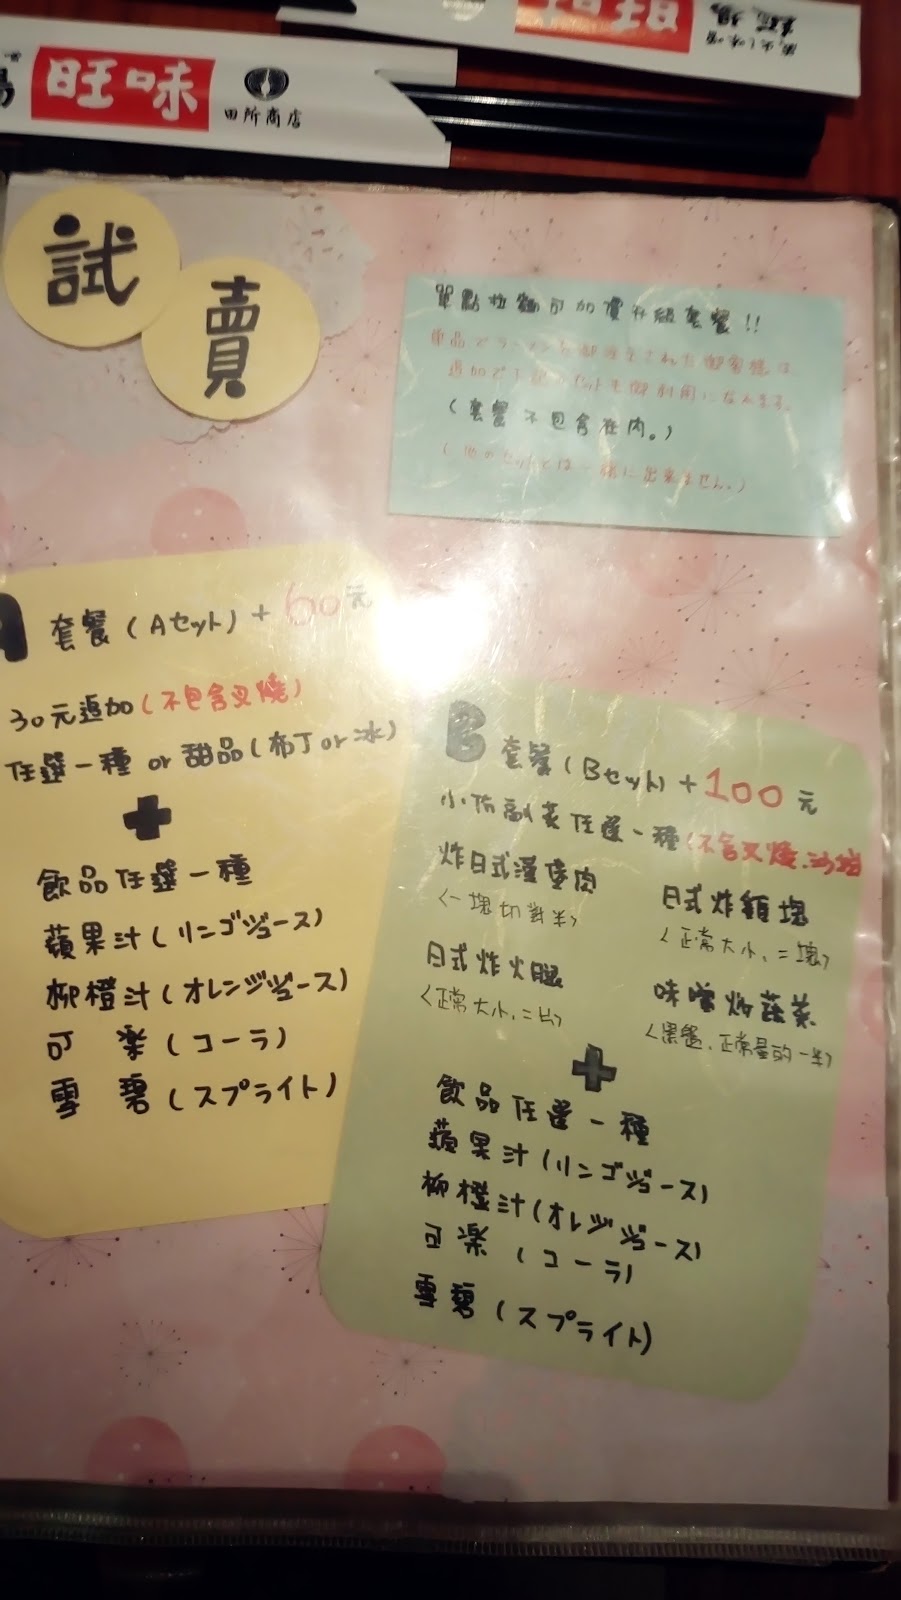 旺味
田所商店
試賣
單點拉麵可加價升級套餐!!
単品でラーメンを御注文された御客様は、
追加で下記のセットも御利用になれます。
(套餐不包含在内。)
(他のセットとは一緒に出来ません。)
A 套餐(Aセット)+60元
30元追加(不包含叉燒)
任選一種or甜品(布丁or冰)
+
飲品任選一種
蘋果汁(リンゴジュース)
柳橙汁(オレンジジュース)
可楽(コーラ)
雪碧(スプライト)
B 套餐(Bセット)+100元
小份副菜任選一種(不含叉燒.沙拉
炸日式漢堡肉
<一塊切對半>
日式炸雞塊
<正常大小,二塊>
日式炸火腿
<正常大小,二片>
味噌炒蔬菜
<黑盤,正常量的一半>
+
飲品任選一種
蘋果汁(リンゴジュース)
柳橙汁(オレンジジュース)
可楽(コーラ)
雪碧(スプライト)